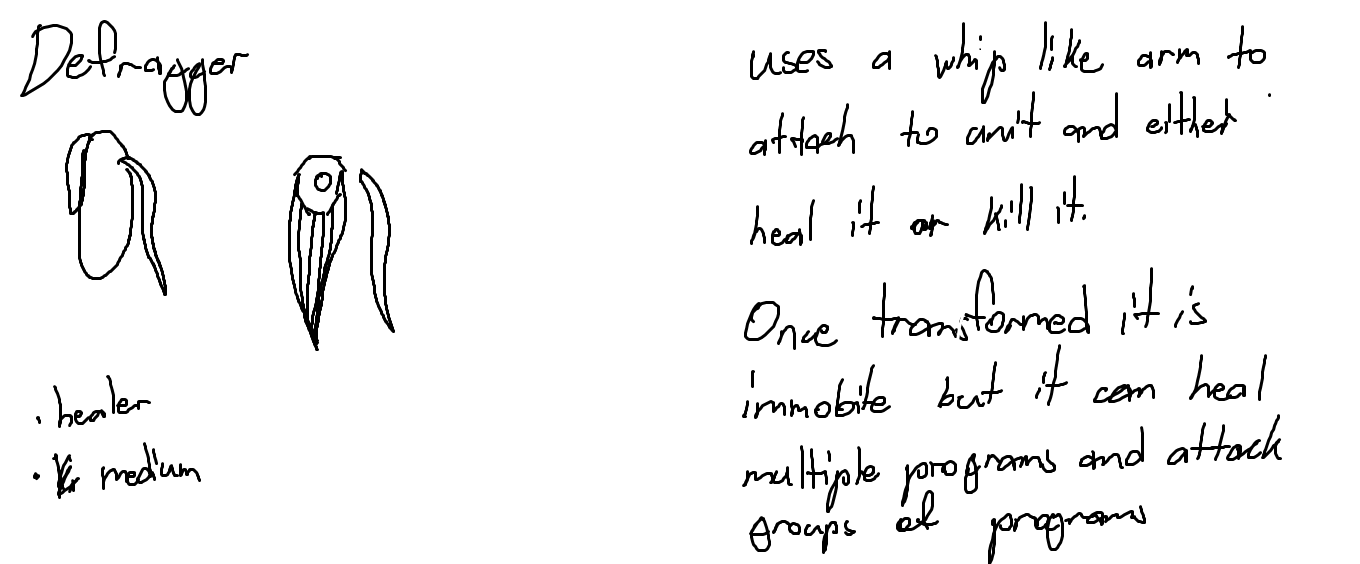 Defragger
• healer
• medium
uses a whip like arm to
attach to unit and either
heal it or kill it.
Once transformed it is
immobile but it can heal
multiple programs and attack
groups of programs